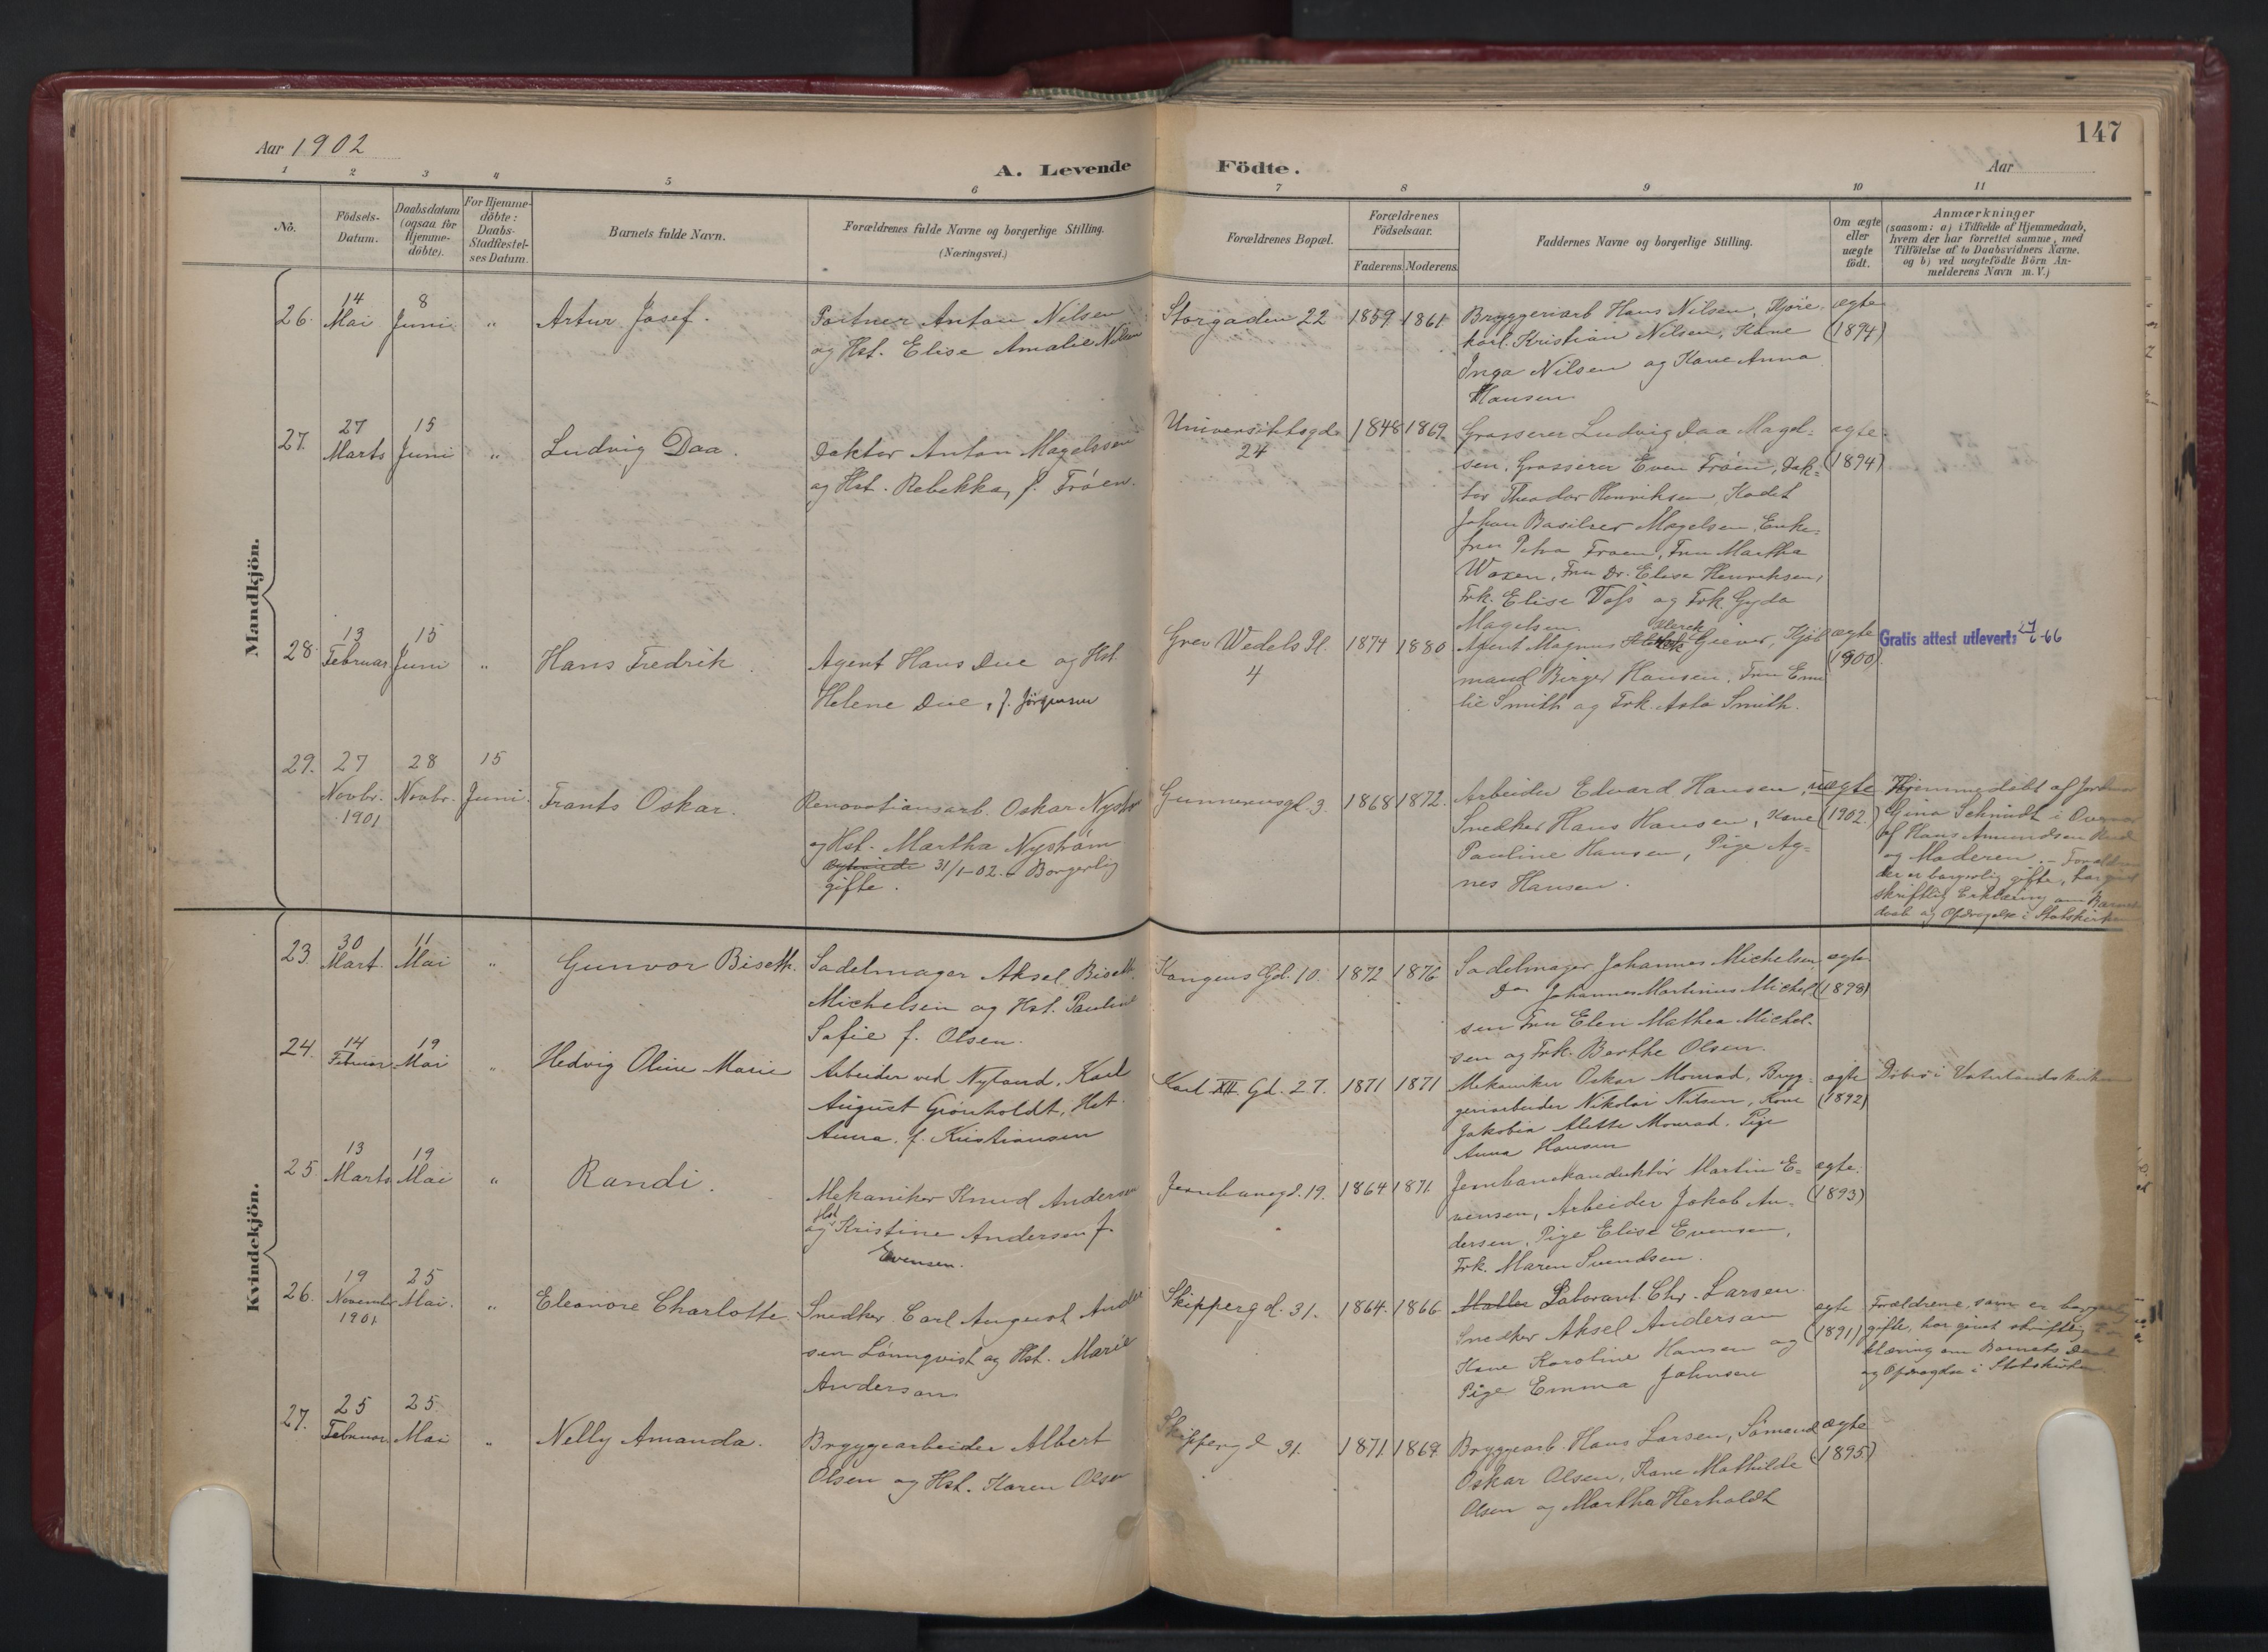 147
Aar 1902
A. Levende Födte.
Aar
1 2 3 4 5 6 7 8 9 10 11
No.
Födsels-Datum.
Daabsdatum (ogsaa for Hjemme-döbte).
For Hjemme-döbte: Daabs-Stadfæstel-ses Datum.
Barnets fulde Navn.
Forældrenes fulde Navne og borgerlige Stilling.
(Næringsvei.)
Forældrenes Bopæl.
Forældrenes Födselsaar.
Faderens. Moderens.
Faddernes Navne og borgerlige Stilling.
Om ægte eller uægte födt.
Anmærkninger
(saasom: a) i Tilfælde af Hjemmedaab,
hvem der har forrettet samme, med
Tilföielse af to Daabsvidners Navne.
og b) ved uægtefödte Börn An-
melderens Navn m. V.)
Mandkjön.
26. 14 Mai 8 Juni " Artur Josef.
Portner Anton Nilsen
og Hst. Elise Amalie Nilsen
Storgaden 22 1859 1861
Bryggeriarb Hans Nilsen, Kjøre
karl Kristian Nilsen, Kone
Inga Nilsen og Kone Anna
Hansen
ægte
(1894)
27. 27 Marts 15 Juni " Ludvig Daa.
Doktor Anton Magelssen
og Hst. Rebekka, f. Frøen.
Universitetsgd. 24 1848 1869.
Grosserer Ludvig Daa Magel-
sen, Grosserer Even Frøen, Dok-
tor Theodor Henriksen, Kadet
Johan Magelsen, Enke-
fru Petra Frøen, Fru Martha
Woxen, Fru Dr. Elise Henriksen,
Frk. Elise Voss og Frk. Gyda
Magelsen.
ægte
(1894)
28. 13 Februar 15 Juni " Hans Fredrik.
Agent Hans Due og Hst.
Helene Due, f. Jörgensen
Grev Wedels Pl. 4 1874 1880
Agent Magnus Grever, Kjøb
mand Birger Hansen, Fru Emi
lie Smith og Frk. Asta Smith.
ægte
(1900)
Gratis attest utlevert: 66
29. 27 Novbr. 1901 28 Novbr. 15 Juni. Frants Oskar.
Renovationsarb. Oskar Nystrøm
og Hst. Martha Nystrøm
31/1-02. Borgerlig
gifte.
Gunnerusgd. 3. 1868 1872.
Arbeider Edvard Hansen,
Snedker Hans Hansen, Kone
Pauline Hansen, Pige Ag-
nes Hansen.
uægte
(1902.)
Hjemmedøbt af Jordmor
Gina Schmidt i Overvær
af Hans Amundsen
og Moderen. - Forældrene
der er borgerlig gifte, har givet
skriftlig Erklæring om Barnets
daab og Opdragelse i Statskirken
Kvindekjön.
23. 30 Mart. 11 Mai " Gunvor Biseth.
Sadelmager Aksel Biseth
Michelsen og Hst. Pauline
Sofie f. Olsen.
Kongens Gd. 10. 1872 1876
Sadelmager Johannes Michelsen
Do Johannes Martinius Michel
sen Fru Elen Mathea Michel-
sen og Frk. Berthe Olsen.
ægte
(1898)
24. 14 Februar 19 Mai " Hedvig Oline Marie
Arbeider ved Nyland, Karl
August Grönholdt, Hst.
Anna, f. Kristiansen
Karl XII. Gd. 27. 1871 1871
Mekaniker Oskar Monrad, Bryg-
geriarbeider Nikolai Nilsen, Kone
Jakobin Alette Monrad, Pige
Anna Hansen
ægte
(1892)
Döbt i Vaterlandskirken
25. 13 Marts 19 Mai " Randi.
Mekaniker Knud Andersen
og Hst Kristine Andersen f.
Evensen.
Jernbanegd. 19. 1864 1871
Jernbanekonduktör Martin E-
vensen, Arbeider Jakob An-
dersen, Pige Elise Evensen,
Frk. Maren Svendsen.
ægte.
(1893)
26. 19 November 1901 25 Mai. " Eleonore Charlotte
Snedker Carl August Ander
sen Lönnqvist og Hst. Marie
Anderson
Skippergd. 31. 1864. 1866
Laborant Chr. Larsen
Snedker Aksel Anderson
Kone Karoline Hansen og
Pige Emma Johnsen
ægte
(1891)
Forældrene, som er borgerlig
gifte, har givet skriftlig Er
klæring om Barnets Daab
og Opdragelse i Statskirken
27. 25 Februar 25. Mai " Nelly Amanda.
Bryggearbeider Albert
Olsen og Hst. Karen Olsen
Skippergd 31. 1871. 1869.
Bryggearb. Hans Larsen, Sömand
Oskar Olsen, Kone Mathilde
Olsen og Martha Herholdt
ægte
(1895)